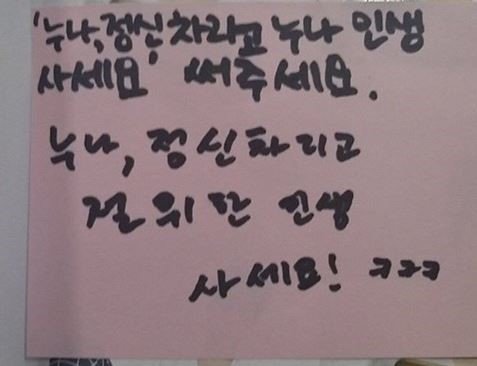 '누나, 정신 차리고 누나 인생
사세요' 써주세요.
누나, 정신차리고
절 위한 인생
사세요! ㅋㅋㅋ